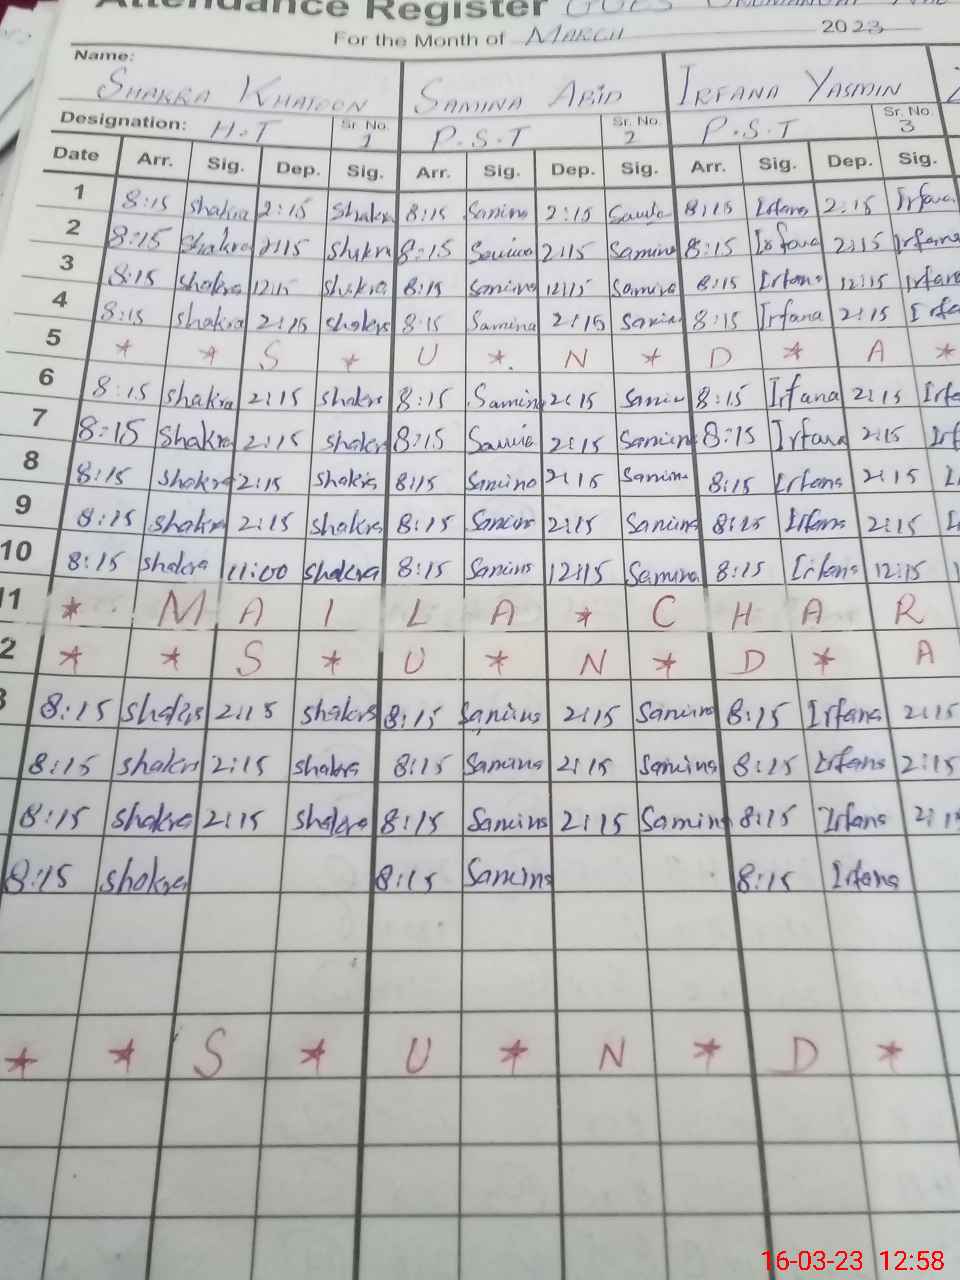 Attendance Register GGES
For the Month of MARCH 2023
Name:
SHAKRA KHATOON SAMINA ABID IRFANA YASMIN
Designation: H.T Sr. No. 1 P.S.T Sr. No. 2 P.S.T Sr. No. 3
Date Arr. Sig. Dep. Sig. Arr. Sig. Dep. Sig. Arr. Sig. Dep. Sig.
1 8:15 Shakra 2:15 Shakra 8:15 Samina 2:15 Samina 8:15 Irfana 2:15 Irfana
2 8:15 Shakra 2:15 Shakra 8:15 Samina 2:15 Samina 8:15 Irfana 2:15 Irfana
3 8:15 Shakra 12:15 Shakra 8:15 Samina 12:15 Samina 8:15 Irfana 12:15 Irfana
4 8:15 Shakra 2:15 Shakra 8:15 Samina 2:15 Samina 8:15 Irfana 2:15 Irfa
5 * * S * U * N * D * A *
6 8:15 Shakra 2:15 Shakra 8:15 Samina 2:15 Samina 8:15 Irfana 2:15 Irfa
7 8:15 Shakra 2:15 Shakra 8:15 Samina 2:15 Samina 8:15 Irfana 2:15 Irf
8 8:15 Shakra 2:15 Shakra 8:15 Samina 2:15 Samina 8:15 Irfana 2:15 I
9 8:15 Shakra 2:15 Shakra 8:15 Samina 2:15 Samina 8:15 Irfana 2:15 I
10 8:15 Shakra 11:00 Shakra 8:15 Samina 12:15 Samina 8:15 Irfana 12:15 I
11 * M A I L A * C H A R
2 * * S * U * N * D * A
3 8:15 Shakra 2:15 Shakra 8:15 Samina 2:15 Samina 8:15 Irfana 2:15
8:15 Shakra 2:15 Shakra 8:15 Samina 2:15 Samina 8:15 Irfana 2:15
8:15 Shakra 2:15 Shakra 8:15 Samina 2:15 Samina 8:15 Irfana 2:15
8:15 Shakra 8:15 Samina 8:15 Irfana
* * S * U * N * D *
16-03-23 12:58